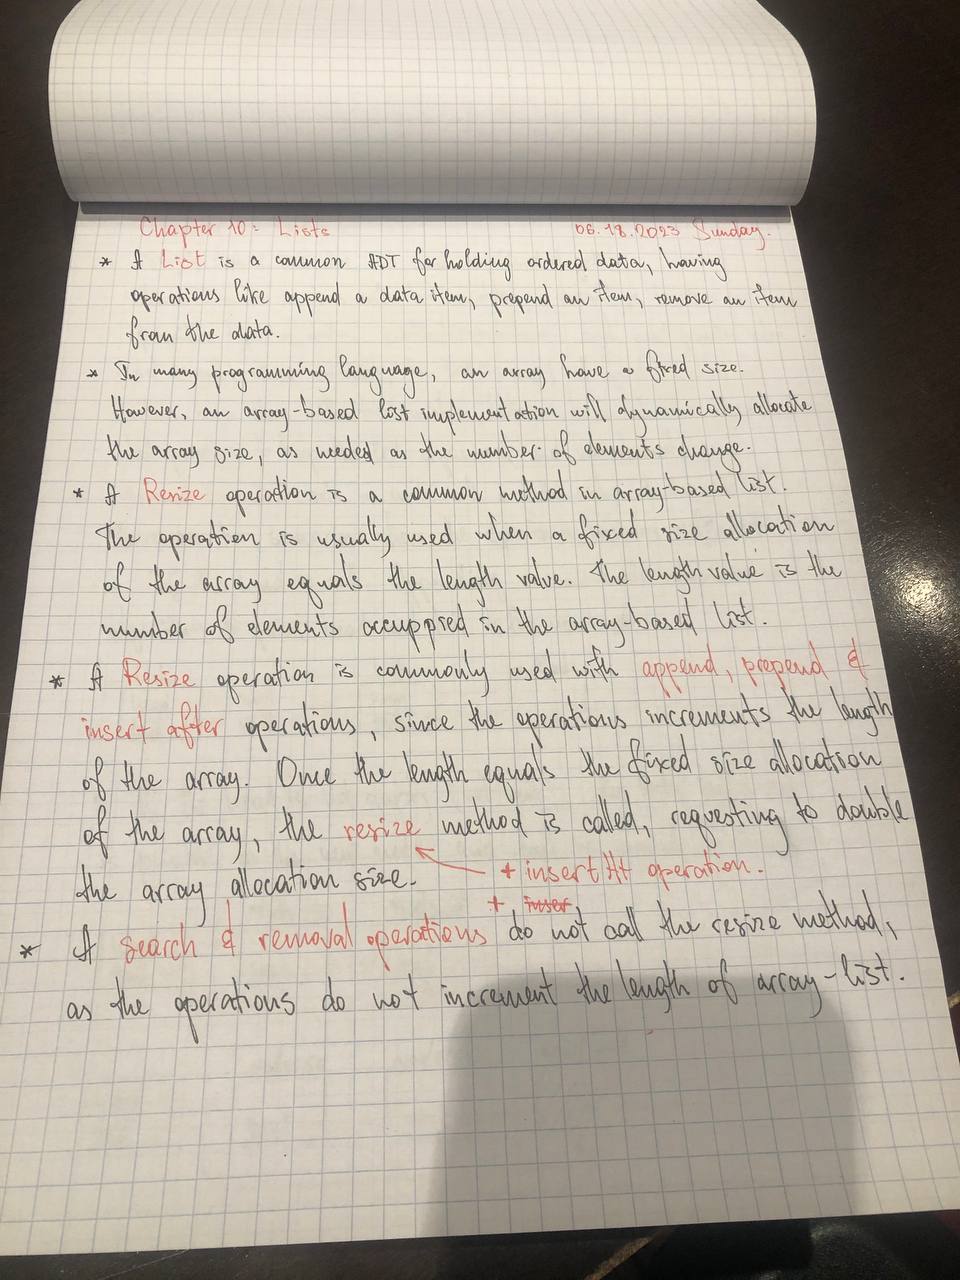 Chapter 10: Lists 06.18.2023 Sunday.
* A List is a common ADT for holding ordered data, having
operations like append a data item, prepend an item, remove an item
from the data.
* In many programming language, an array have a fixed size.
However, an array-based list implementation will dynamically allocate
the array size, as needed as the number of elements change.
* A Resize operation is a common method in array-based list.
The operation is usually used when a fixed size allocation
of the array equals the length value. The length value is the
number of elements occuppied in the array-based list.
* A Resize operation is commonly used with append, prepend &
insert after operations, since the operations increments the length
of the array. Once the length equals the fixed size allocation
of the array, the resize method is called, requesting to double
the array allocation size. + insertAt operation.
+ inser
* A search & removal operations do not call the resize method,
as the operations do not increment the length of array-list.